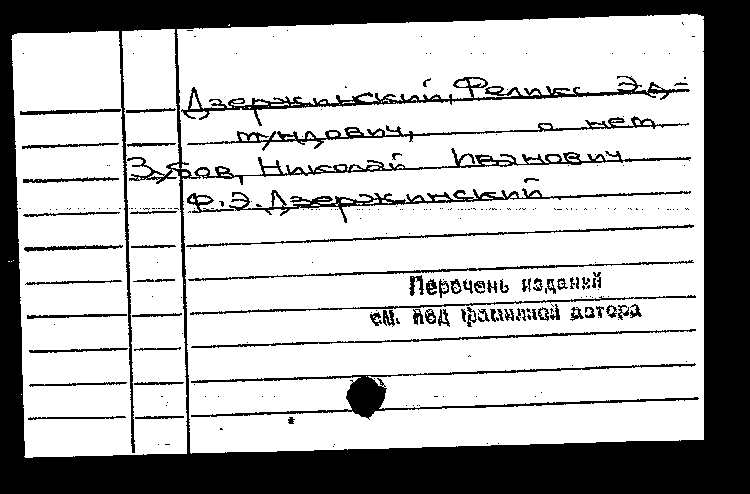 Дзержинский, Феликс Эд-
мундович, о нем
Зубов, Николай Иванович
Ф.Э. Дзержинский
Перечень изданий
см. под фамилией автора